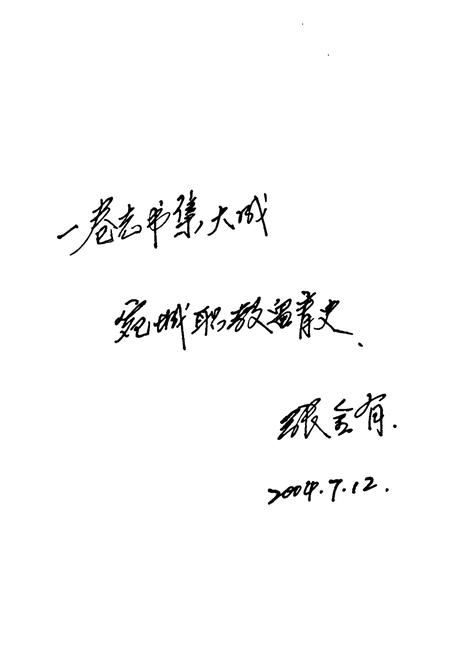 一卷志书集大成
宛城职教留青史.
张金有.
2004.7.12.